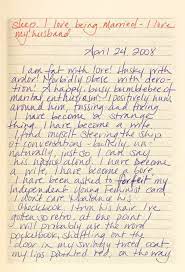 sleep. I love being Married - I love
my husband.
April 24, 2008
I am fat with love! Husky with
ardor! Morbidly obese with devo-
tion! A happy, busy bumblebee of
marital enthusiasm! I positively hum
around him, fussing and fixing.
I have become a strange
thing. I have become a wife.
I find myself steering the ship
of conversations - bulkily, un-
naturally, just so I can say
his name aloud. I have become
a wife, I have become a bore,
I have been asked to forfeit my
independent young feminist card.
I don't care. I balance his
checkbook, I trim his hair. I've
gotten so retro, at one point I
will probably use the word
pocketbook, shuffling out the
door in my swingy tweed coat,
my lips painted red, on the way